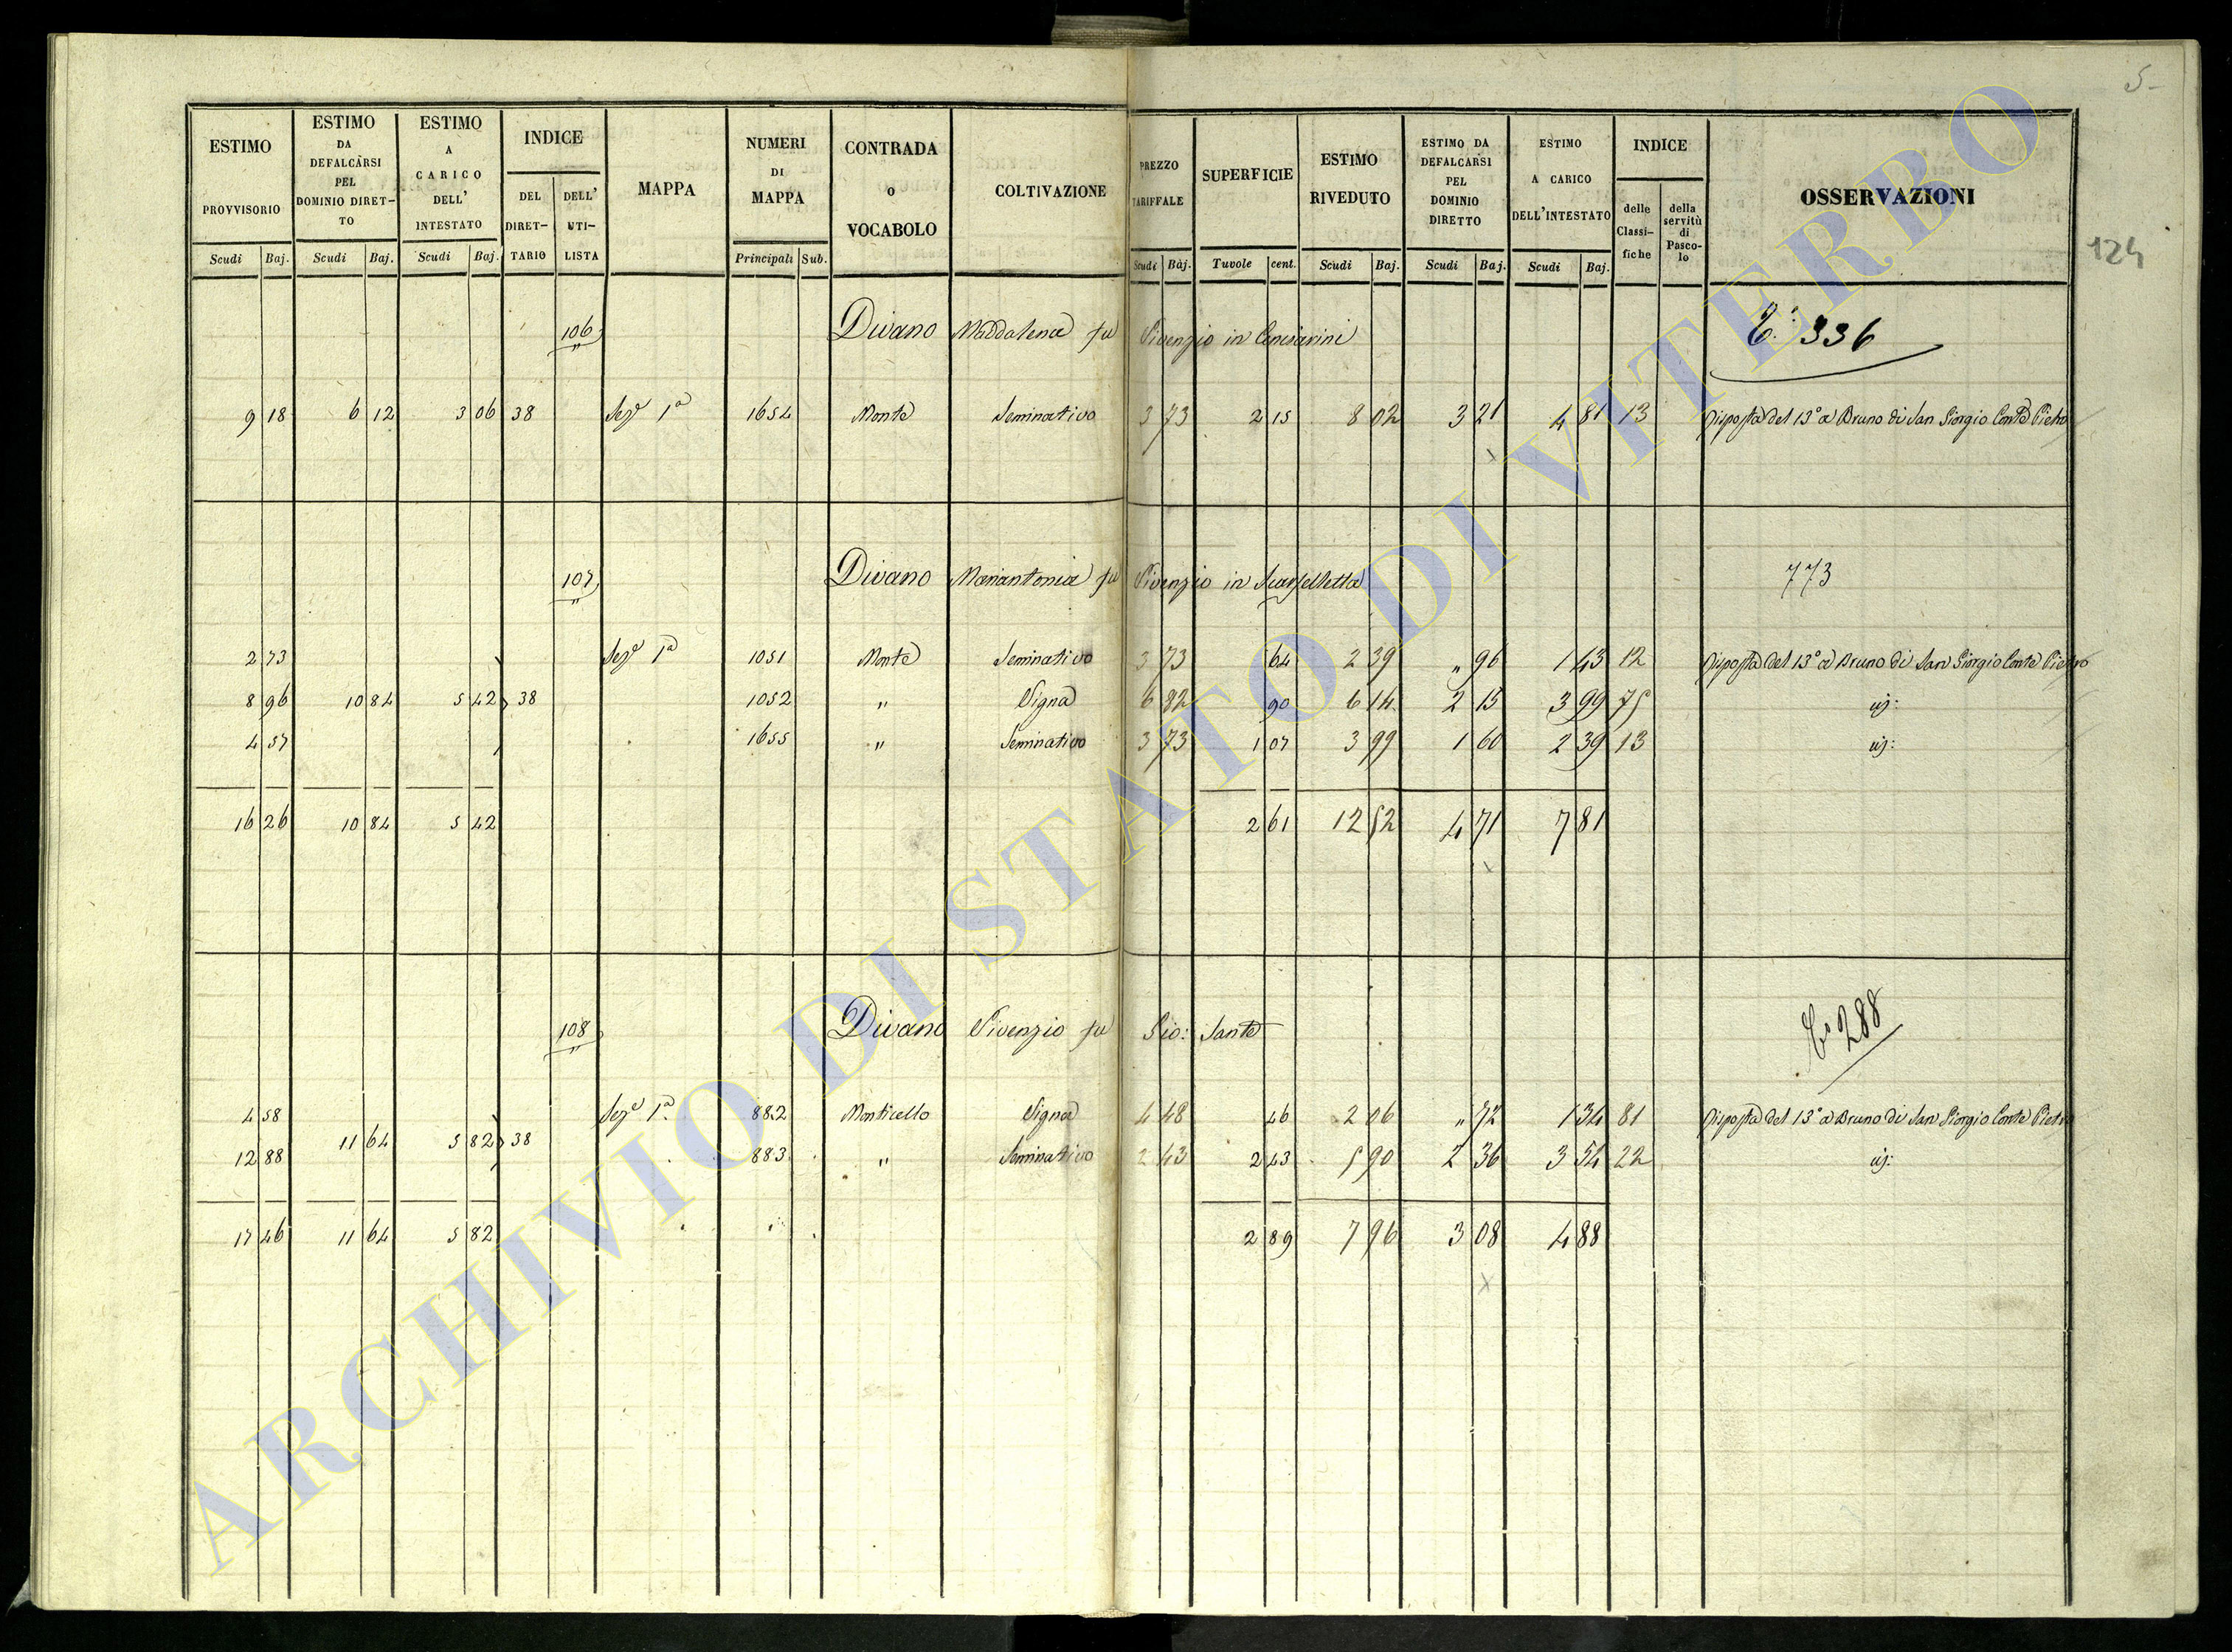 5-
124
ESTIMO PROVVISORIO | ESTIMO DA DEFALCARSI PEL DOMINIO DIRETTO | ESTIMO A CARICO DELL' INTESTATO | INDICE | MAPPA | NUMERI DI MAPPA | CONTRADA O VOCABOLO | COLTIVAZIONE | PREZZO TARIFFALE | SUPERFICIE | ESTIMO RIVEDUTO | ESTIMO DA DEFALCARSI PEL DOMINIO DIRETTO | ESTIMO A CARICO DELL'INTESTATO | INDICE | OSSERVAZIONI
DEL DIRET-TARIO | DELL' UTI-LISTA | delle Classi-fiche | della servitù di Pasco-lo
Scudi | Baj. | Scudi | Baj. | Scudi | Baj. | Principali | Sub. | Scudi | Baj. | Tavole | cent. | Scudi | Baj. | Scudi | Baj. | Scudi | Baj.
106 Divano Maddalena fu Vivenzio in 336
9 18 6 12 3 06 38 Sez.e 1a 1654 Monte Seminativo 3 73 2 15 8 02 3 21 4 81 13 Risposta del 13° a Bruno di San Giorgio Conte Pietro
107 Divano Mariantonia fu Vivenzio in Scarfelletta 773
2 73 Sez.e 1a 1051 Monte Seminativo 3 73 64 2 39 " 96 1 43 12 Risposta del 13° a Bruno di San Giorgio Conte Pietro
8 96 10 84 5 42 38 1052 " Vigna 6 82 90 6 14 2 15 3 99 75
4 57 1655 " Seminativo 3 73 1 07 3 99 1 60 2 39 13
16 26 10 84 5 42 2 61 12 52 4 71 7 81
108 Divano Vivenzio fu Gio: Sante 288
4 58 Sez.e 1a 882 Monticello Vigna 4 48 46 2 06 " 72 1 34 81 Risposta del 13° a Bruno di San Giorgio Conte Pietro
11 64 5 82 38
12 88 883 " Seminativo 2 43 2 43 5 90 2 36 3 54 22
17 46 11 64 5 82 2 89 7 96 3 08 4 88
ARCHIVIO DI STATO DI VITERBO